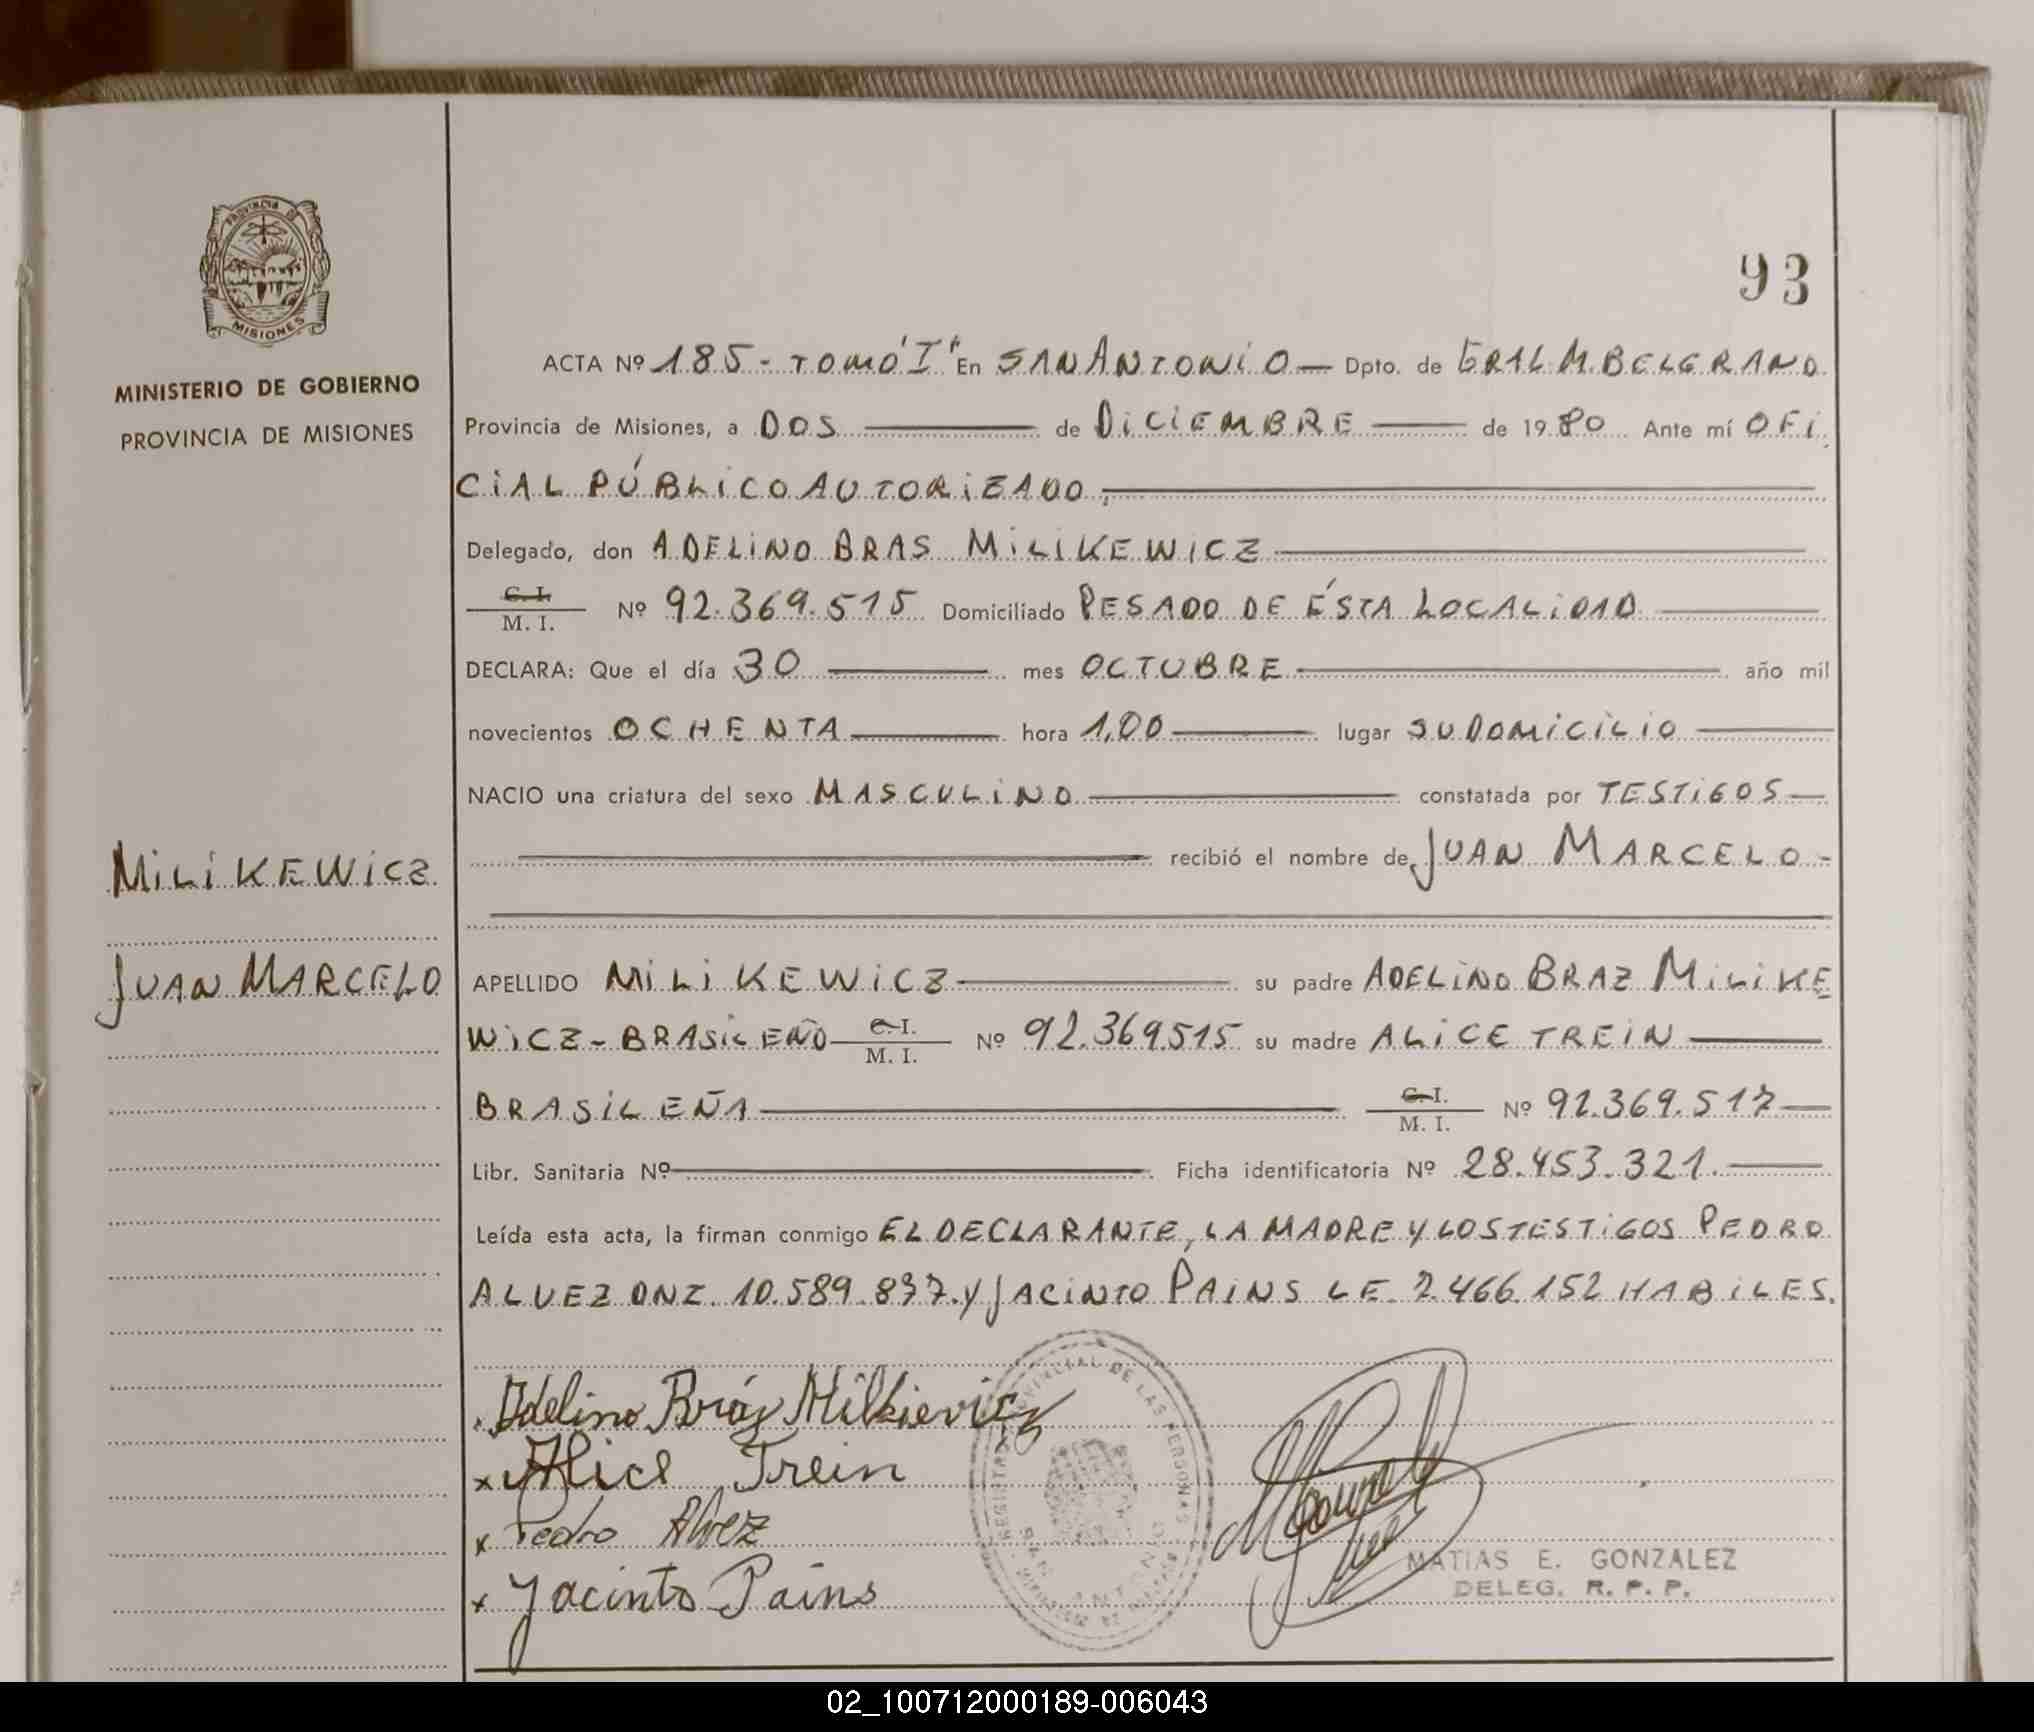 93
PROVINCIA DE
MISIONES
MINISTERIO DE GOBIERNO
PROVINCIA DE MISIONES
ACTA Nº 185 - TOMO "I" En SAN ANTONIO — Dpto. de GRAL M. BELGRANO
Provincia de Misiones, a DOS de DICIEMBRE de 1980 Ante mí OFI
CIAL PÚBLICO AUTORIZADO,
Delegado, don ADELINO BRAS MILIKEWICZ
C. I.
M. I. Nº 92.369.515 Domiciliado PESADO DE ÉSTA LOCALIDAD
DECLARA: Que el día 30 mes OCTUBRE año mil
novecientos OCHENTA hora 1,00 lugar SU DOMICILIO
NACIO una criatura del sexo MASCULINO constatada por TESTIGOS
recibió el nombre de JUAN MARCELO -
MILIKEWICZ
JUAN MARCELO
APELLIDO MILIKEWICZ su padre ADELINO BRAZ MILIKE
WICZ - BRASILEÑO C. I.
M. I. Nº 92.369515 su madre ALICE TREIN
BRASILEÑA C. I.
M. I. Nº 92.369.517
Libr. Sanitaria Nº Ficha identificatoria Nº 28.453.321.
Leída esta acta, la firman conmigo EL DECLARANTE, LA MADRE Y LOS TESTIGOS PEDRO
ALVEZ DNI. 10.589.837. Y JACINTO PAINS LE. 7.466.152 HABILES.
Adelino Bráz Milkievicz
x Alice Trein
x Pedro Alvez
x Jacinto Pains
PROVINCIAL DE LAS PERSONAS
SAN ANTONIO
MATIAS E. GONZALEZ
DELEG. R. P. P.
02_100712000189-006043